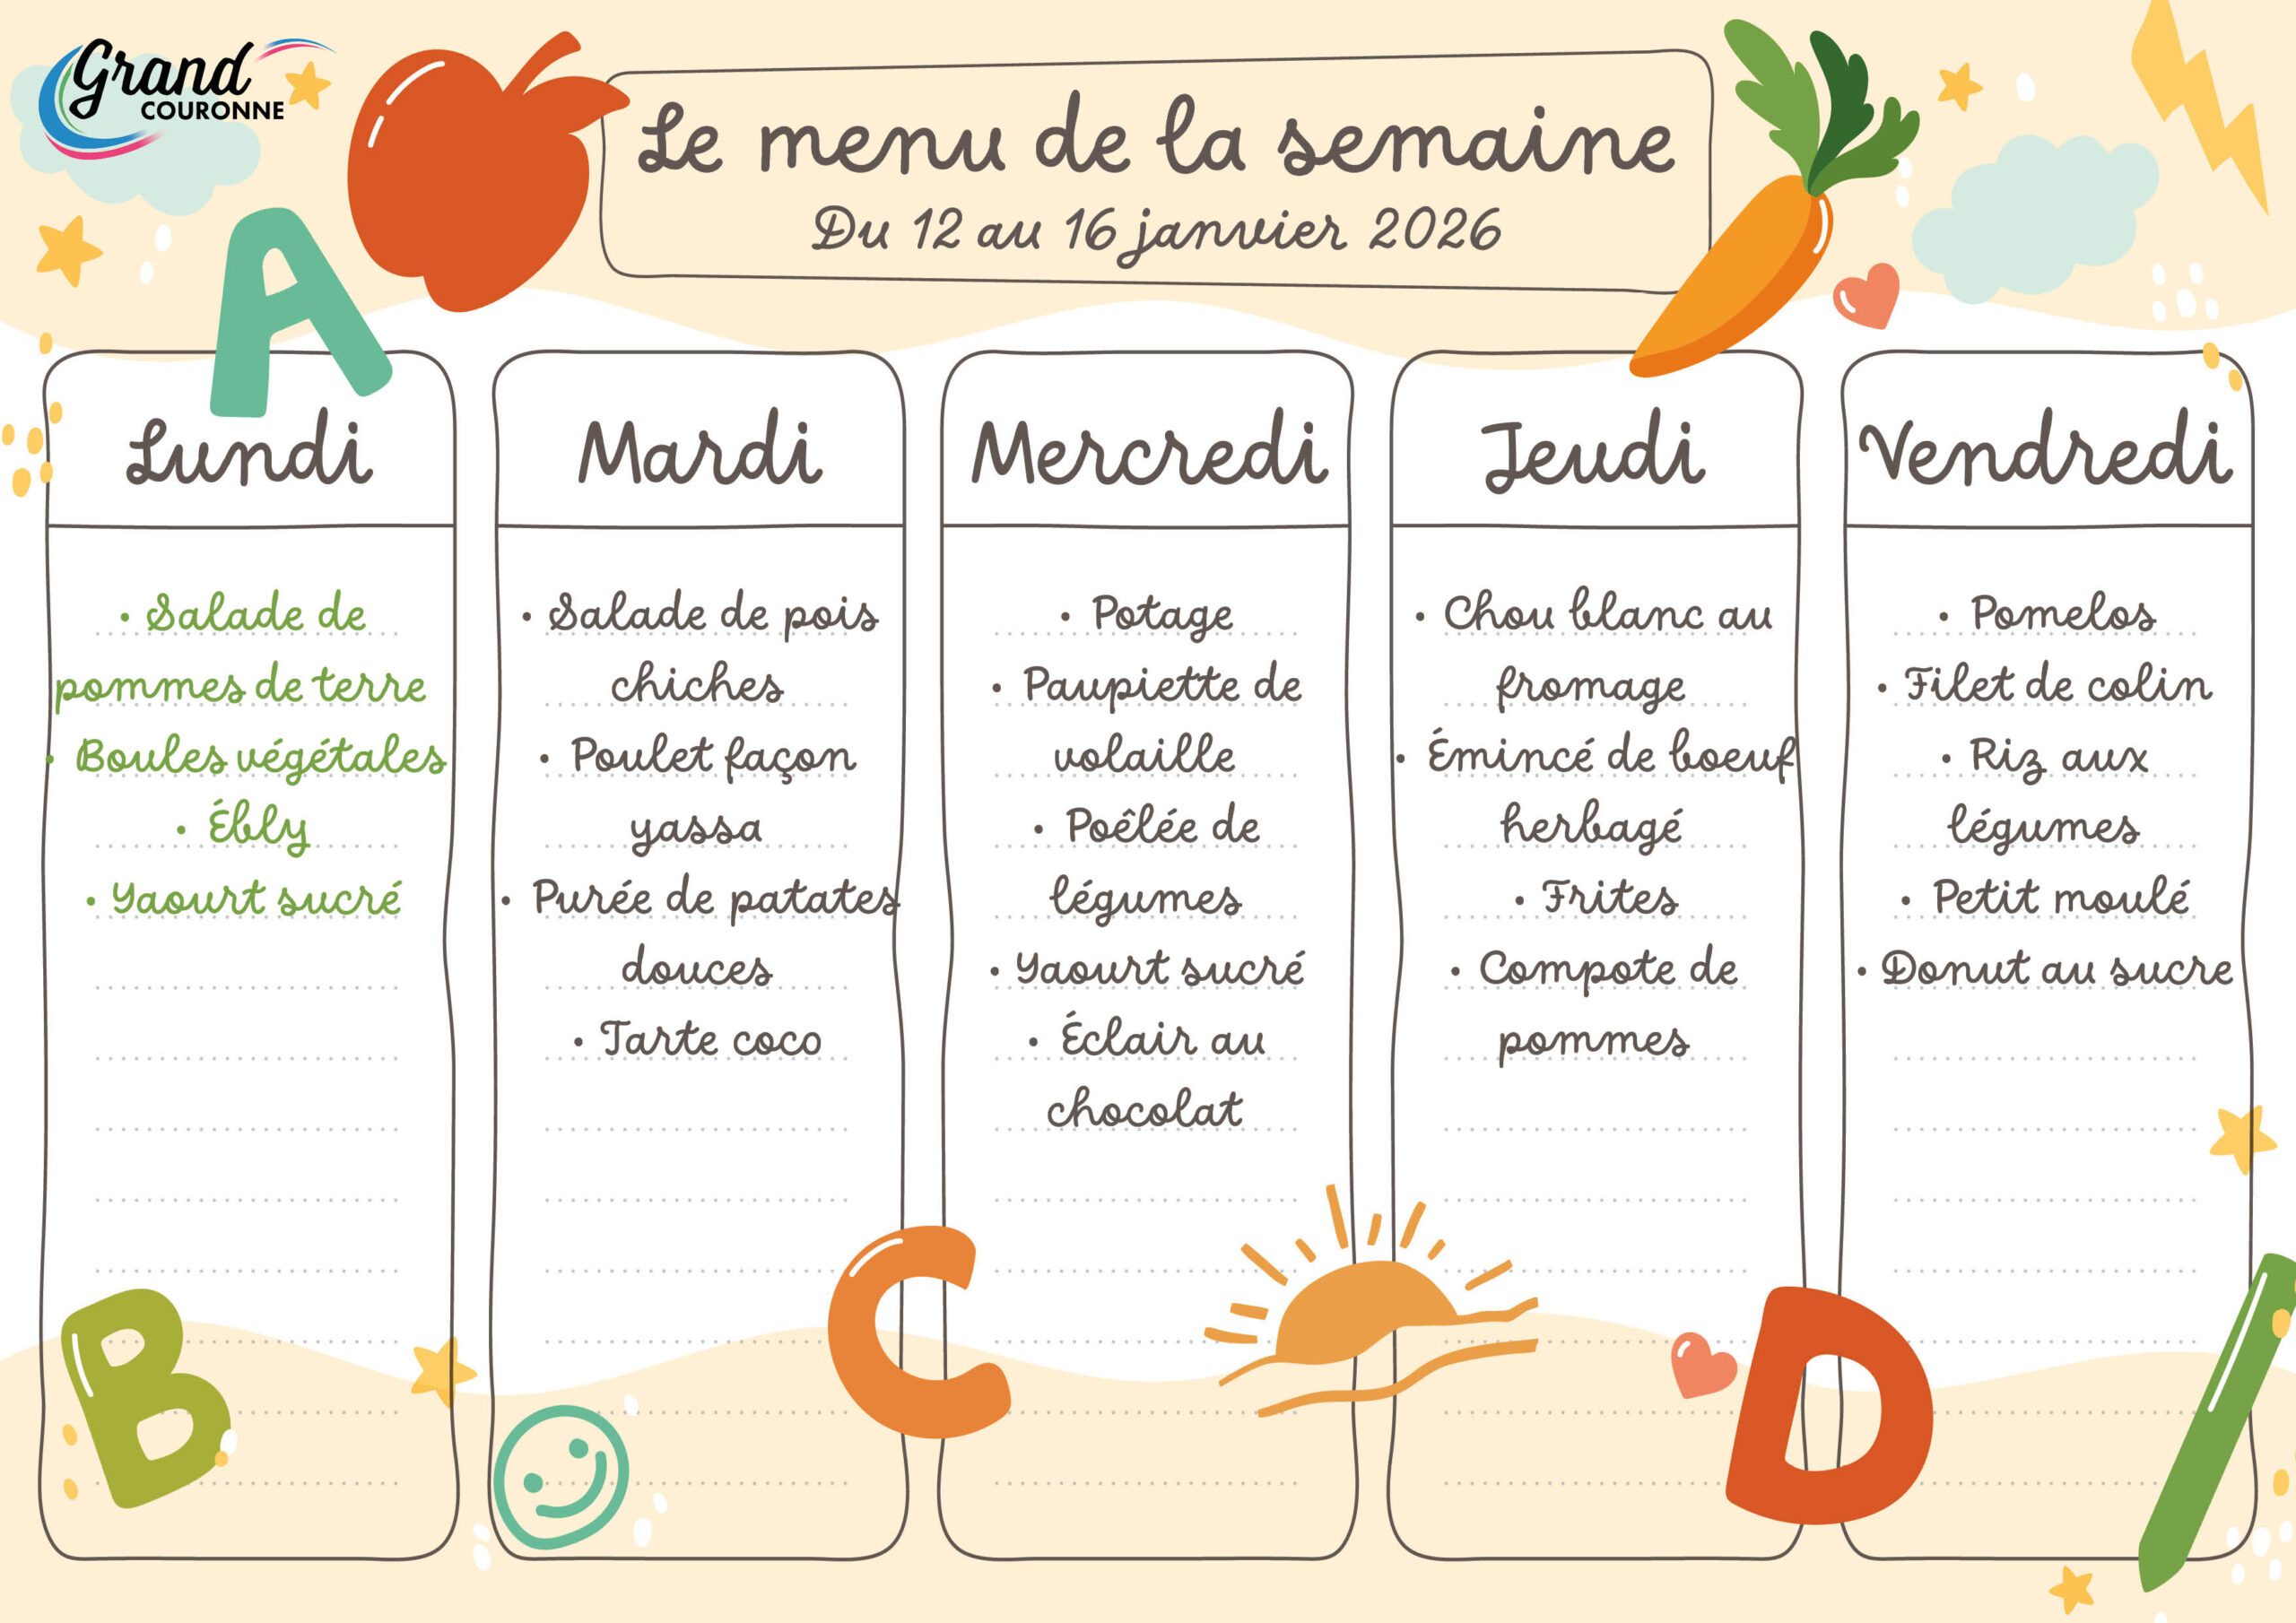 Grand
COURONNE
Le menu de la semaine
Du 12 au 16 janvier 2026
A
Lundi
• Salade de
pommes de terre
• Boules végétales
• Ébly
• Yaourt sucré
Mardi
• Salade de pois
chiches
• Poulet façon
yassa
• Purée de patates
douces
• Tarte coco
Mercredi
• Potage
• Paupiette de
volaille
• Poêlée de
légumes
• Yaourt sucré
• Éclair au
chocolat
Jeudi
• Chou blanc au
fromage
• Émincé de boeuf
herbagé
• Frites
• Compote de
pommes
Vendredi
• Pomelos
• Filet de colin
• Riz aux
légumes
• Petit moulé
• Donut au sucre
B
C
D